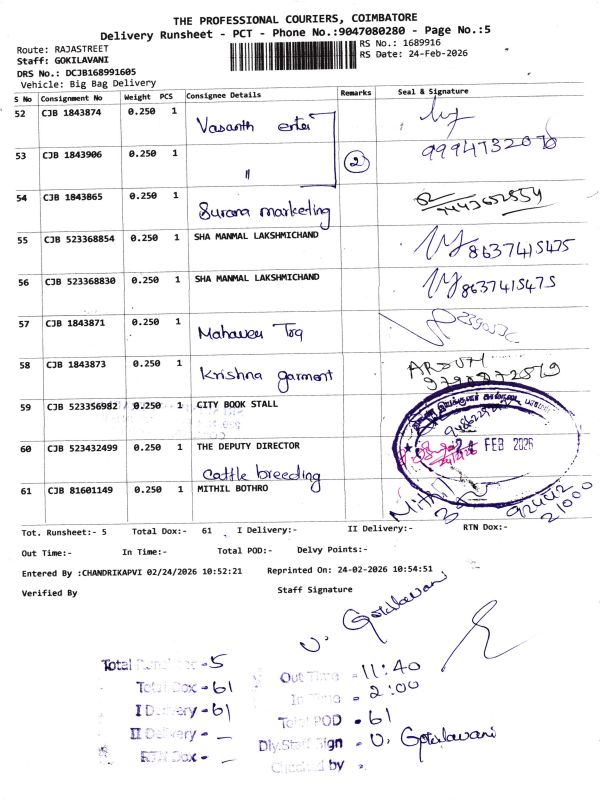 THE PROFESSIONAL COURIERS, COIMBATORE
Delivery Runsheet - PCT - Phone No.:9047080280 - Page No.:5
Route: RAJASTREET
Staff: GOKILAVANI
DRS No.: DCJB168991605
Vehicle: Big Bag Delivery
RS No.: 1689916
RS Date: 24-Feb-2026
S No Consignment No Weight PCS Consignee Details Remarks Seal & Signature
52 CJB 1843874 0.250 1 Vasanth
53 CJB 1843906 0.250 1 " 2 9994732070
54 CJB 1843865 0.250 1 Surana marketing
55 CJB 523368854 0.250 1 SHA MANMAL LAKSHMICHAND 8637415475
56 CJB 523368830 0.250 1 SHA MANMAL LAKSHMICHAND 8637415475
57 CJB 1843871 0.250 1 Mahaveer
58 CJB 1843873 0.250 1 Krishna garment
59 CJB 523356982 0.250 1 CITY BOOK STALL
60 CJB 523432499 0.250 1 THE DEPUTY DIRECTOR
Cattle breeding
24 FEB 2026
61 CJB 81601149 0.250 1 MITHIL BOTHRO
92442
21000
Tot. Runsheet:- 5 Total Dox:- 61 I Delivery:- II Delivery:- RTN Dox:-
Out Time:- In Time:- Total POD:- Delvy Points:-
Entered By :CHANDRIKAPVI 02/24/2026 10:52:21 Reprinted On: 24-02-2026 10:54:51
Verified By Staff Signature
Total -5
Total Dox - 61
I Delivery - 61
II Delivery - _
RTN Dox - _
Out Time - 11:40
In Time - 2:00
Total POD - 61
Dly.Staff Sign - 
Checked by -